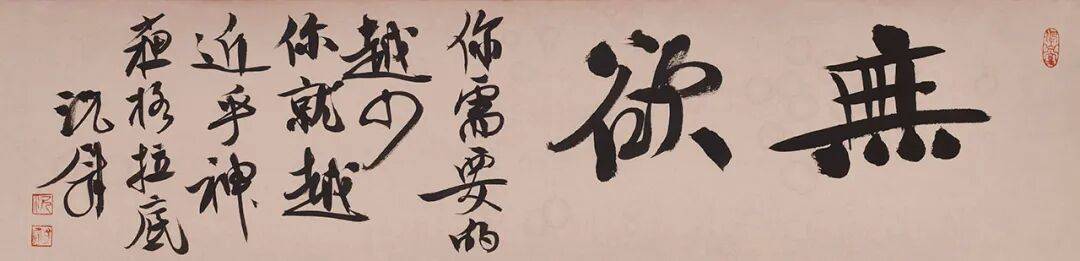 無欲
你需要的
越少
你就越
近乎神
蘇格拉底